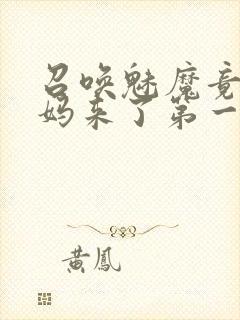 召唤魅魔竟
妈来了第一
黄鳳